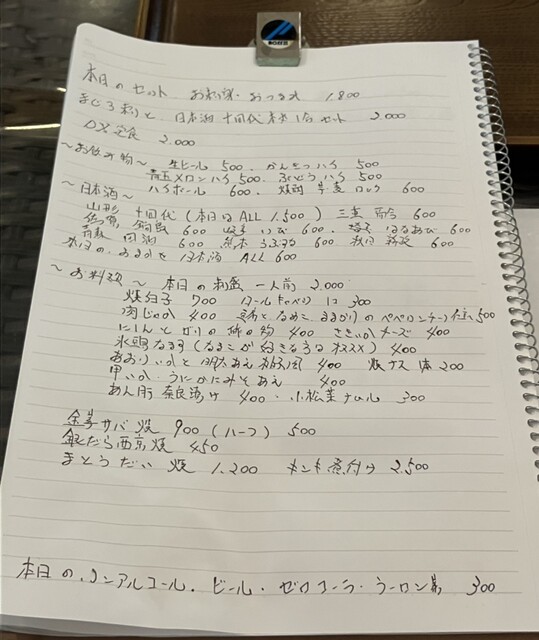 本日のセット お刺身・おつまみ 1,800
まぐろ刺しと、日本酒 十四代 本丸 1合 セット 2,000
DX定食 2,000
〜お飲み物〜 生ビール 500. かんきつハイ 500
青玉メロンハイ 500. ぶどうハイ 500
ハイボール 600. 焼酎 芋麦 ロック 600
〜日本酒〜
山形 十四代 (本日はALL 1,500) 三重 而今 600
600 600. はるあび 600
青森 田酒 600 熊本 600. 秋田 新政 600
本日の、日本酒 ALL 600
〜お料理〜 本日の刺盛 一人前 2,000
焼白子 700 ロールキャベツ 1コ 300
肉じゃが 400 なめこ のペペロンチーノ 500
にしんと の 400 チーズ 400
氷頭なます ( が好きな オススメ) 400
あおりいかと明太あえ 400 焼ナス 1本 200
甲いか うにかにみそあえ 400
あん肝 奈良漬け 400. 小松菜ナムル 300
サバ 焼 900 (ハーフ) 500
銀だら西京焼 450
まとうだい 焼 1,200 キンキ煮付け 2,500
本日の、ノンアルコール・ビール・ゼロコーラ・ウーロン茶 300